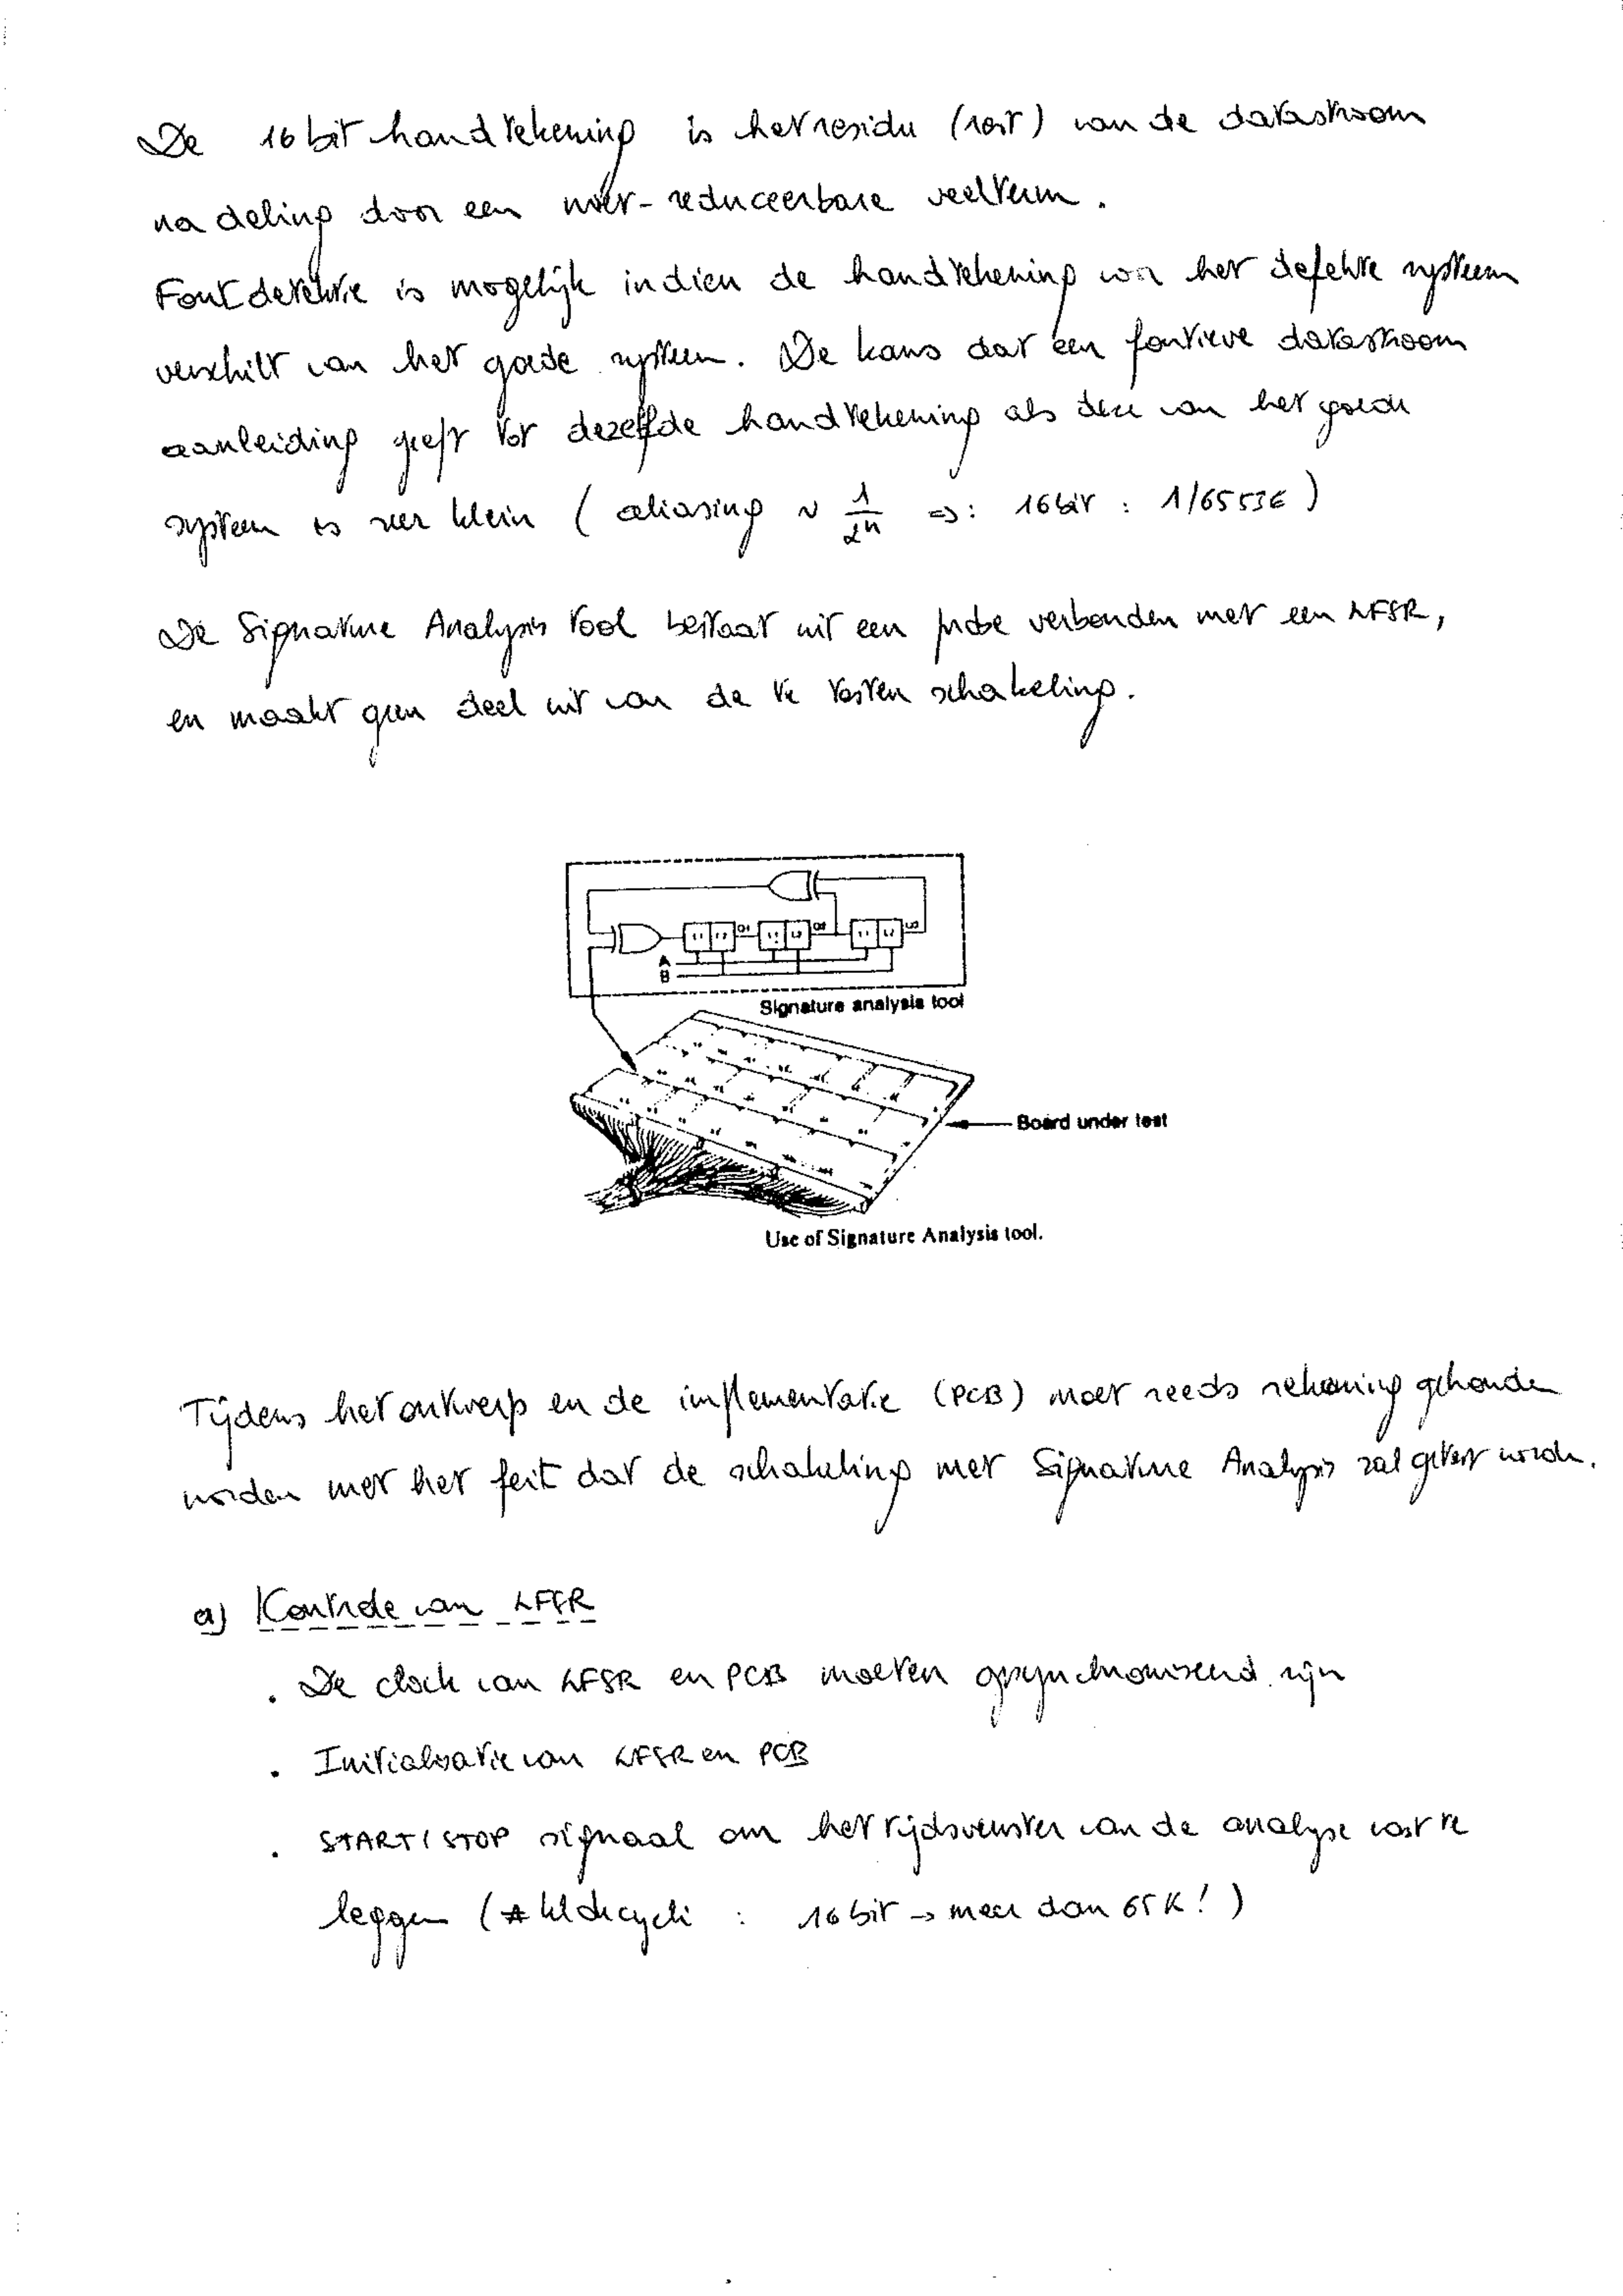 De 16 bit handtekening is het residu (rest) van de datastroom
na deling door een niet-reduceerbare veelterm.
Foutdetektie is mogelijk indien de handtekening van het defekte systeem
verschilt van het goede systeem. De kans dat een foutieve datastroom
aanleiding geeft tot dezelfde handtekening als deze van het goede
systeem is zeer klein ( aliasing ~ 1/2^n => : 16 bit : 1/65536 )
De Signature Analysis tool bestaat uit een probe verbonden met een LFSR,
en maakt geen deel uit van de te testen schakeling.
L1 L2 Q1 L1 L2 Q2 L1 L2 Q3
A
B
Signature analysis tool
Board under test
Use of Signature Analysis tool.
Tijdens het ontwerp en de implementatie (PCB) moet reeds rekening gehouden
worden met het feit dat de schakeling met Signature Analysis zal getest worden.
a) Kontrole van LFSR
. De clock van LFSR en PCB moeten gesynchroniseerd zijn
. Initialisatie van LFSR en PCB
. START/STOP signaal om het tijdsvenster van de analyse vast te
leggen (# klokcycli : 16 bit → meer dan 65K! )